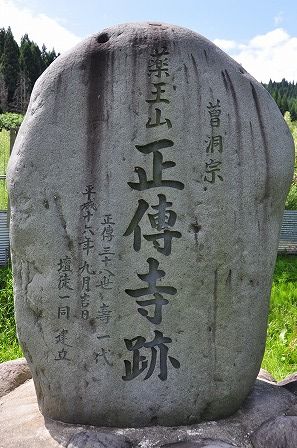 曹洞宗
薬王山 正傳寺跡
正傳三十八世 壽一代
平成十六年九月吉日
壇徒一同 建立